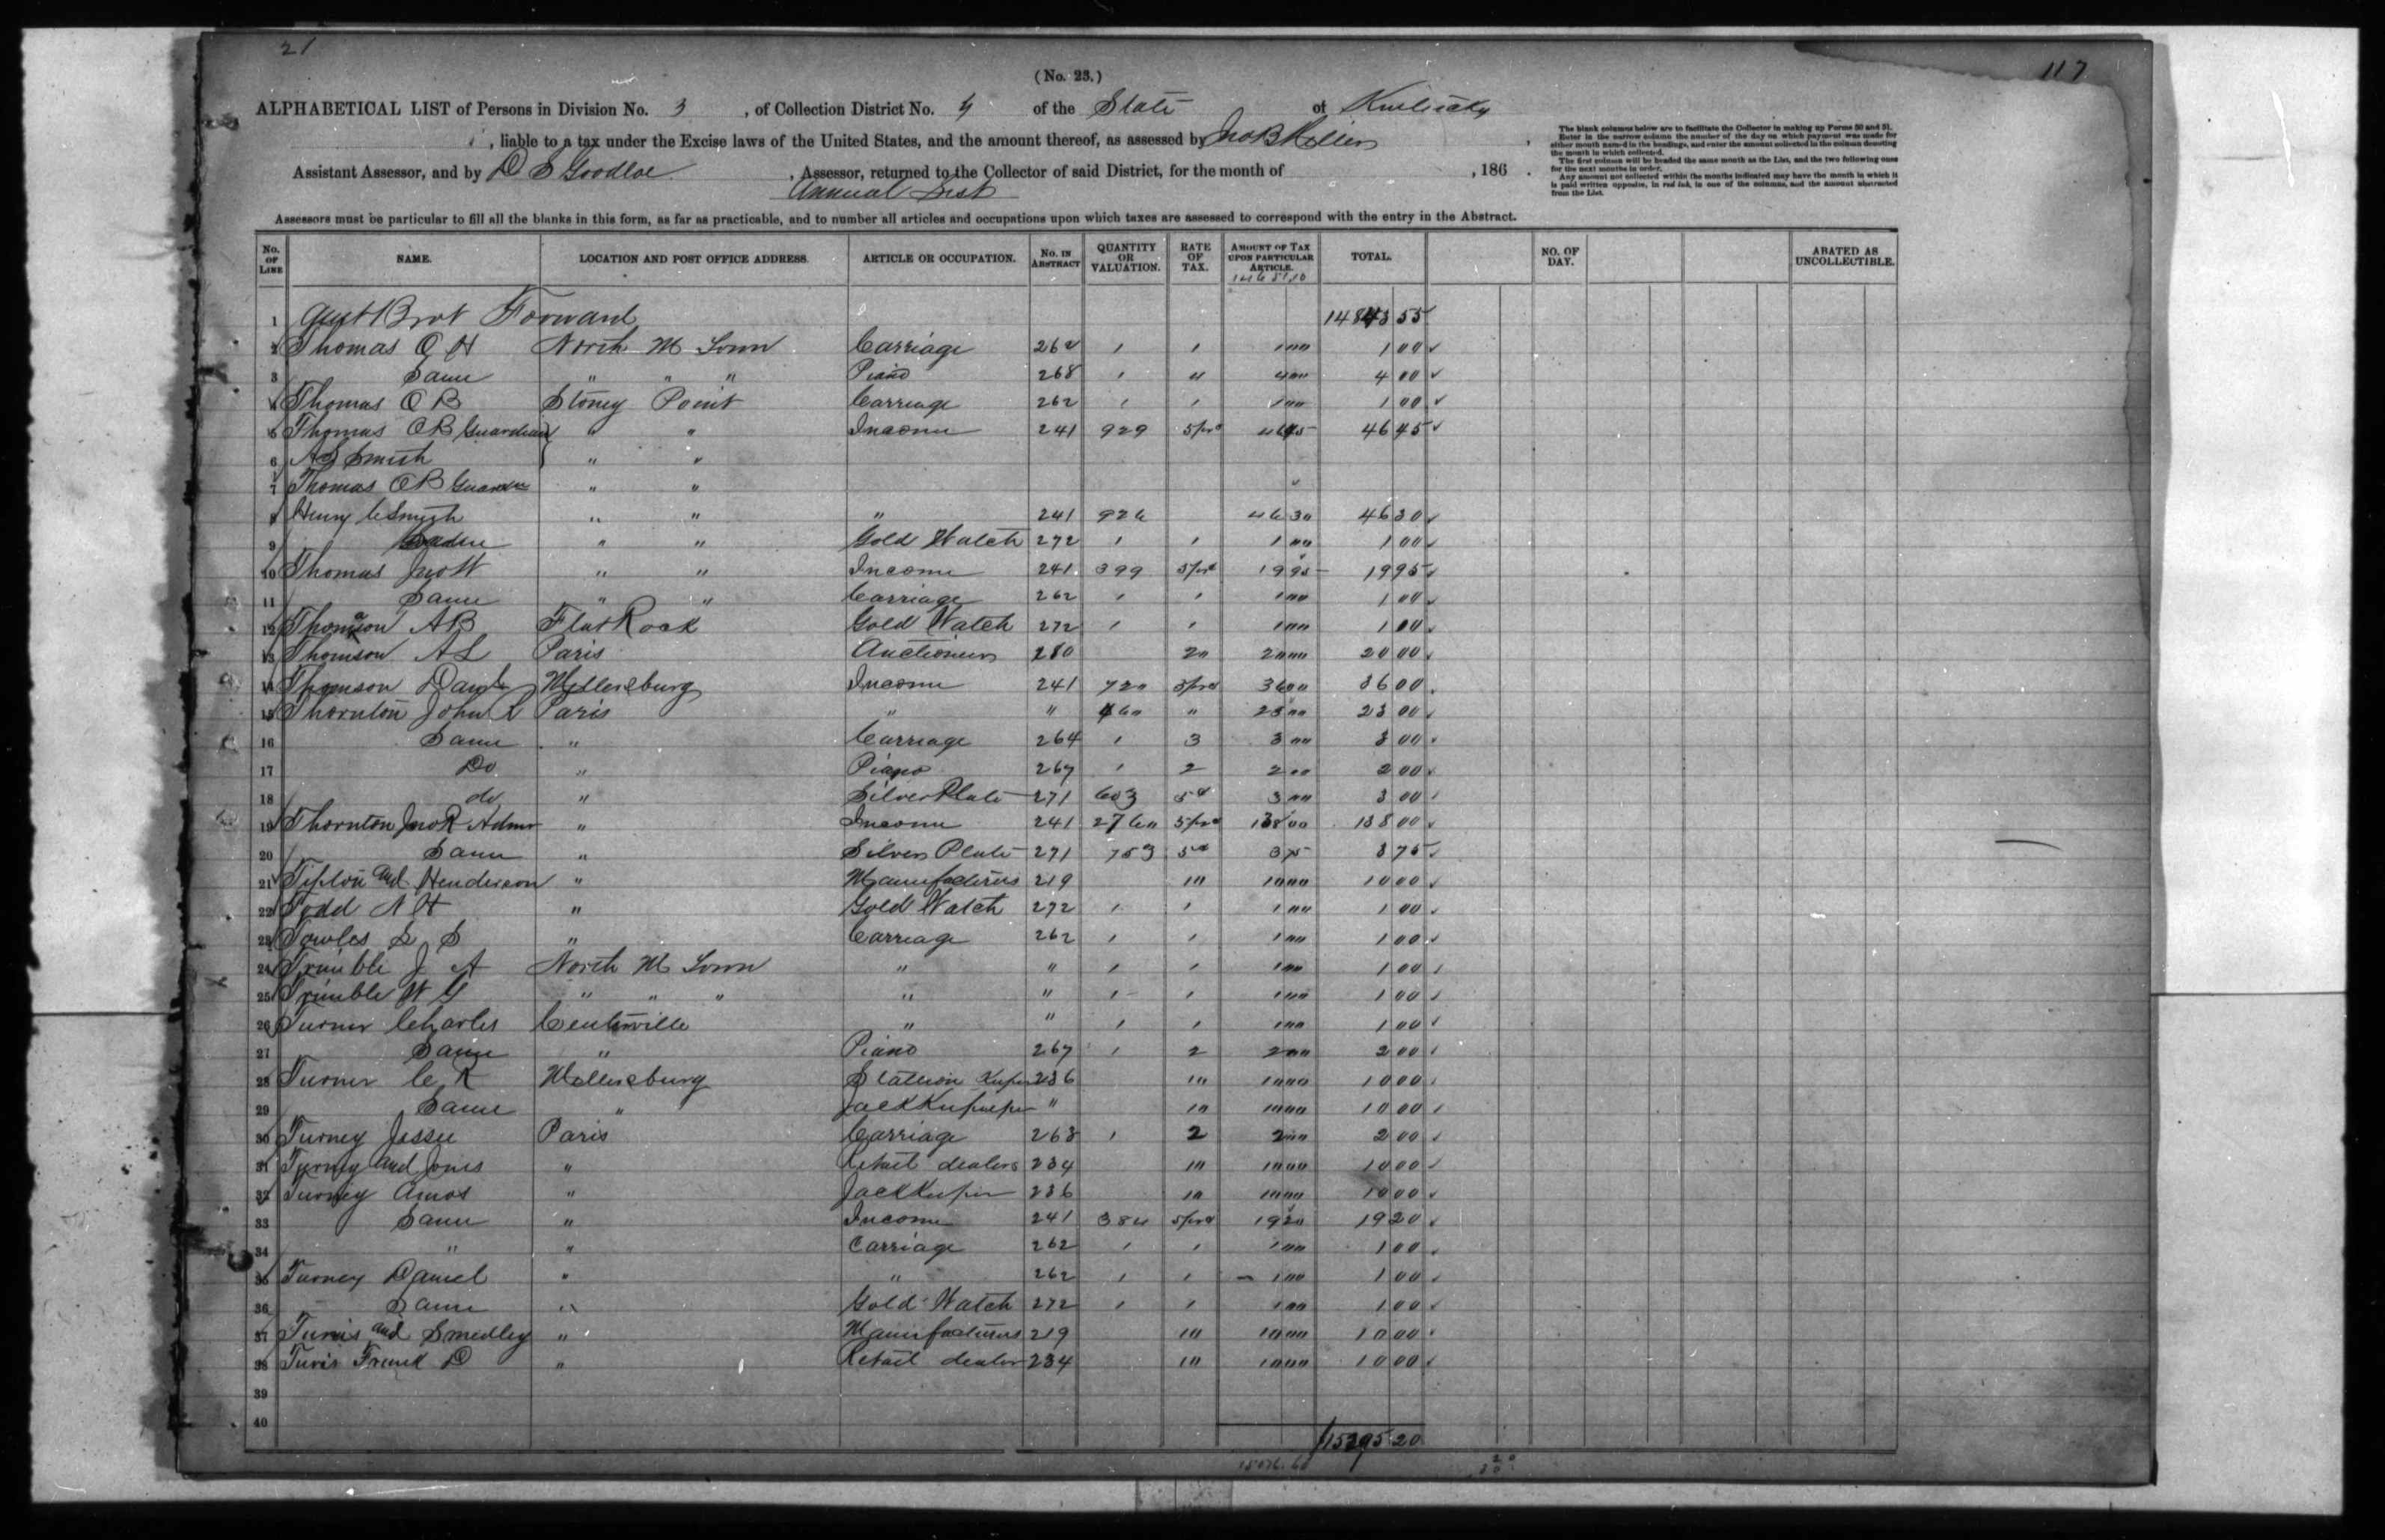 21
117
(No. 23.)
ALPHABETICAL LIST of Persons in Division No. 3, of Collection District No. 4 of the State of Kentucky
, liable to a tax under the Excise laws of the United States, and the amount thereof, as assessed by Jno B
Assistant Assessor, and by D S Goodloe, Assessor, returned to the Collector of said District, for the month of , 186 .
Annual List
The blank columns below are to facilitate the Collector in making up Forms 50 and 51.
Enter in the narrow column the number of the day on which payment was made for
either month named in the headings, and enter the amount collected in the column denoting
the month in which collected.
The first column will be headed the same month as the List, and the two following ones
for the next months in order.
Any amount not collected within the months indicated may have the month in which it
is paid written opposite, in red ink, in one of the columns, and the amount abstracted
from the List.
Assessors must be particular to fill all the blanks in this form, as far as practicable, and to number all articles and occupations upon which taxes are assessed to correspond with the entry in the Abstract.
No. OF LINE NAME. LOCATION AND POST OFFICE ADDRESS. ARTICLE OR OCCUPATION. No. IN ABSTRACT QUANTITY OR VALUATION. RATE OF TAX. AMOUNT OF TAX UPON PARTICULAR ARTICLE. TOTAL. NO. OF DAY. ABATED AS UNCOLLECTIBLE.
1 Amt Brot Forward 14843 55
2 Thomas O H North M Town Carriage 262 1 1 1 00 1 00
3 Same " " " Piano 268 1 4 4 00 4 00
4 Thomas O B Stoney Point Carriage 262 1 1 1 00 1 00
5 Thomas O B Guardian " " Income 241 929 5 pr ct 46 45 46 45
6 Smith " "
7 Thomas O B Guardn " " "
8 Henry C Smith " " " 241 926 46 30 46 30
9 " " Gold Watch 272 1 1 1 00 1 00
10 Thomas Jno W " " Income 241 399 5 pr ct 19 95 19 95
11 Same " " Carriage 262 1 1 1 00 1 00
12 Thomson A B Flat Rock Gold Watch 272 1 1 1 00 1 00
13 Thomson A L Paris Auctioneer 280 20 20 00 20 00
14 Thomson Danl Millersburg Income 241 720 5 pr ct 36 00 36 00
15 Thornton John R Paris " " 460 " 23 00 23 00
16 Same " Carriage 264 1 3 3 00 3 00
17 Do " Piano 267 1 2 2 00 2 00
18 do " Silver Plate 271 603 5 ct 3 00 3 00
19 Thornton Jno R Admr " Income 241 2760 5 pr ct 138 00 138 00
20 Same " Silver Plate 271 753 5 ct 3 75 3 75
21 Tipton and Henderson " Manufacturers 219 10 10 00 10 00
22 Todd N H " Gold Watch 272 1 1 1 00 1 00
23 Towles S S " Carriage 262 1 1 1 00 1 00
24 Trimble J A North M Town " " 1 1 1 00 1 00
25 Trimble W G " " " " " 1 1 1 00 1 00
26 Turner Charles Centerville " " 1 1 1 00 1 00
27 Same " Piano 267 1 2 2 00 2 00
28 Turner C R Millersburg Stallion Keeper 236 10 10 00 10 00
29 Same " Jack Keeper " 10 10 00 10 00
30 Turney Jesse Paris Carriage 263 1 2 2 00 2 00
31 Turney and Jones " Retail dealers 234 10 10 00 10 00
32 Turney Amos " Jack Keeper 236 10 10 00 10 00
33 Same " Income 241 384 5 pr ct 19 20 19 20
34 " " Carriage 262 1 1 1 00 1 00
35 Turney Daniel " " 262 1 1 1 00 1 00
36 Same " Gold Watch 272 1 1 1 00 1 00
37 Tunis and Smedley " Manufacturers 219 10 10 00 10 00
38 Frank D " Retail dealer 234 10 10 00 10 00
39
40
15295 20